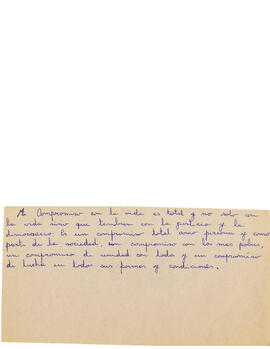 Mi Compromiso con la vida es total y no solo con
la vida sino que tambien con la justicia y la
democracia Es un compromiso total como persona y como
parte de la sociedad, un compromiso con los mas pobres,
un compromiso de unidad con todo y un compromiso
de lucha en todas sus formas y condiciones.